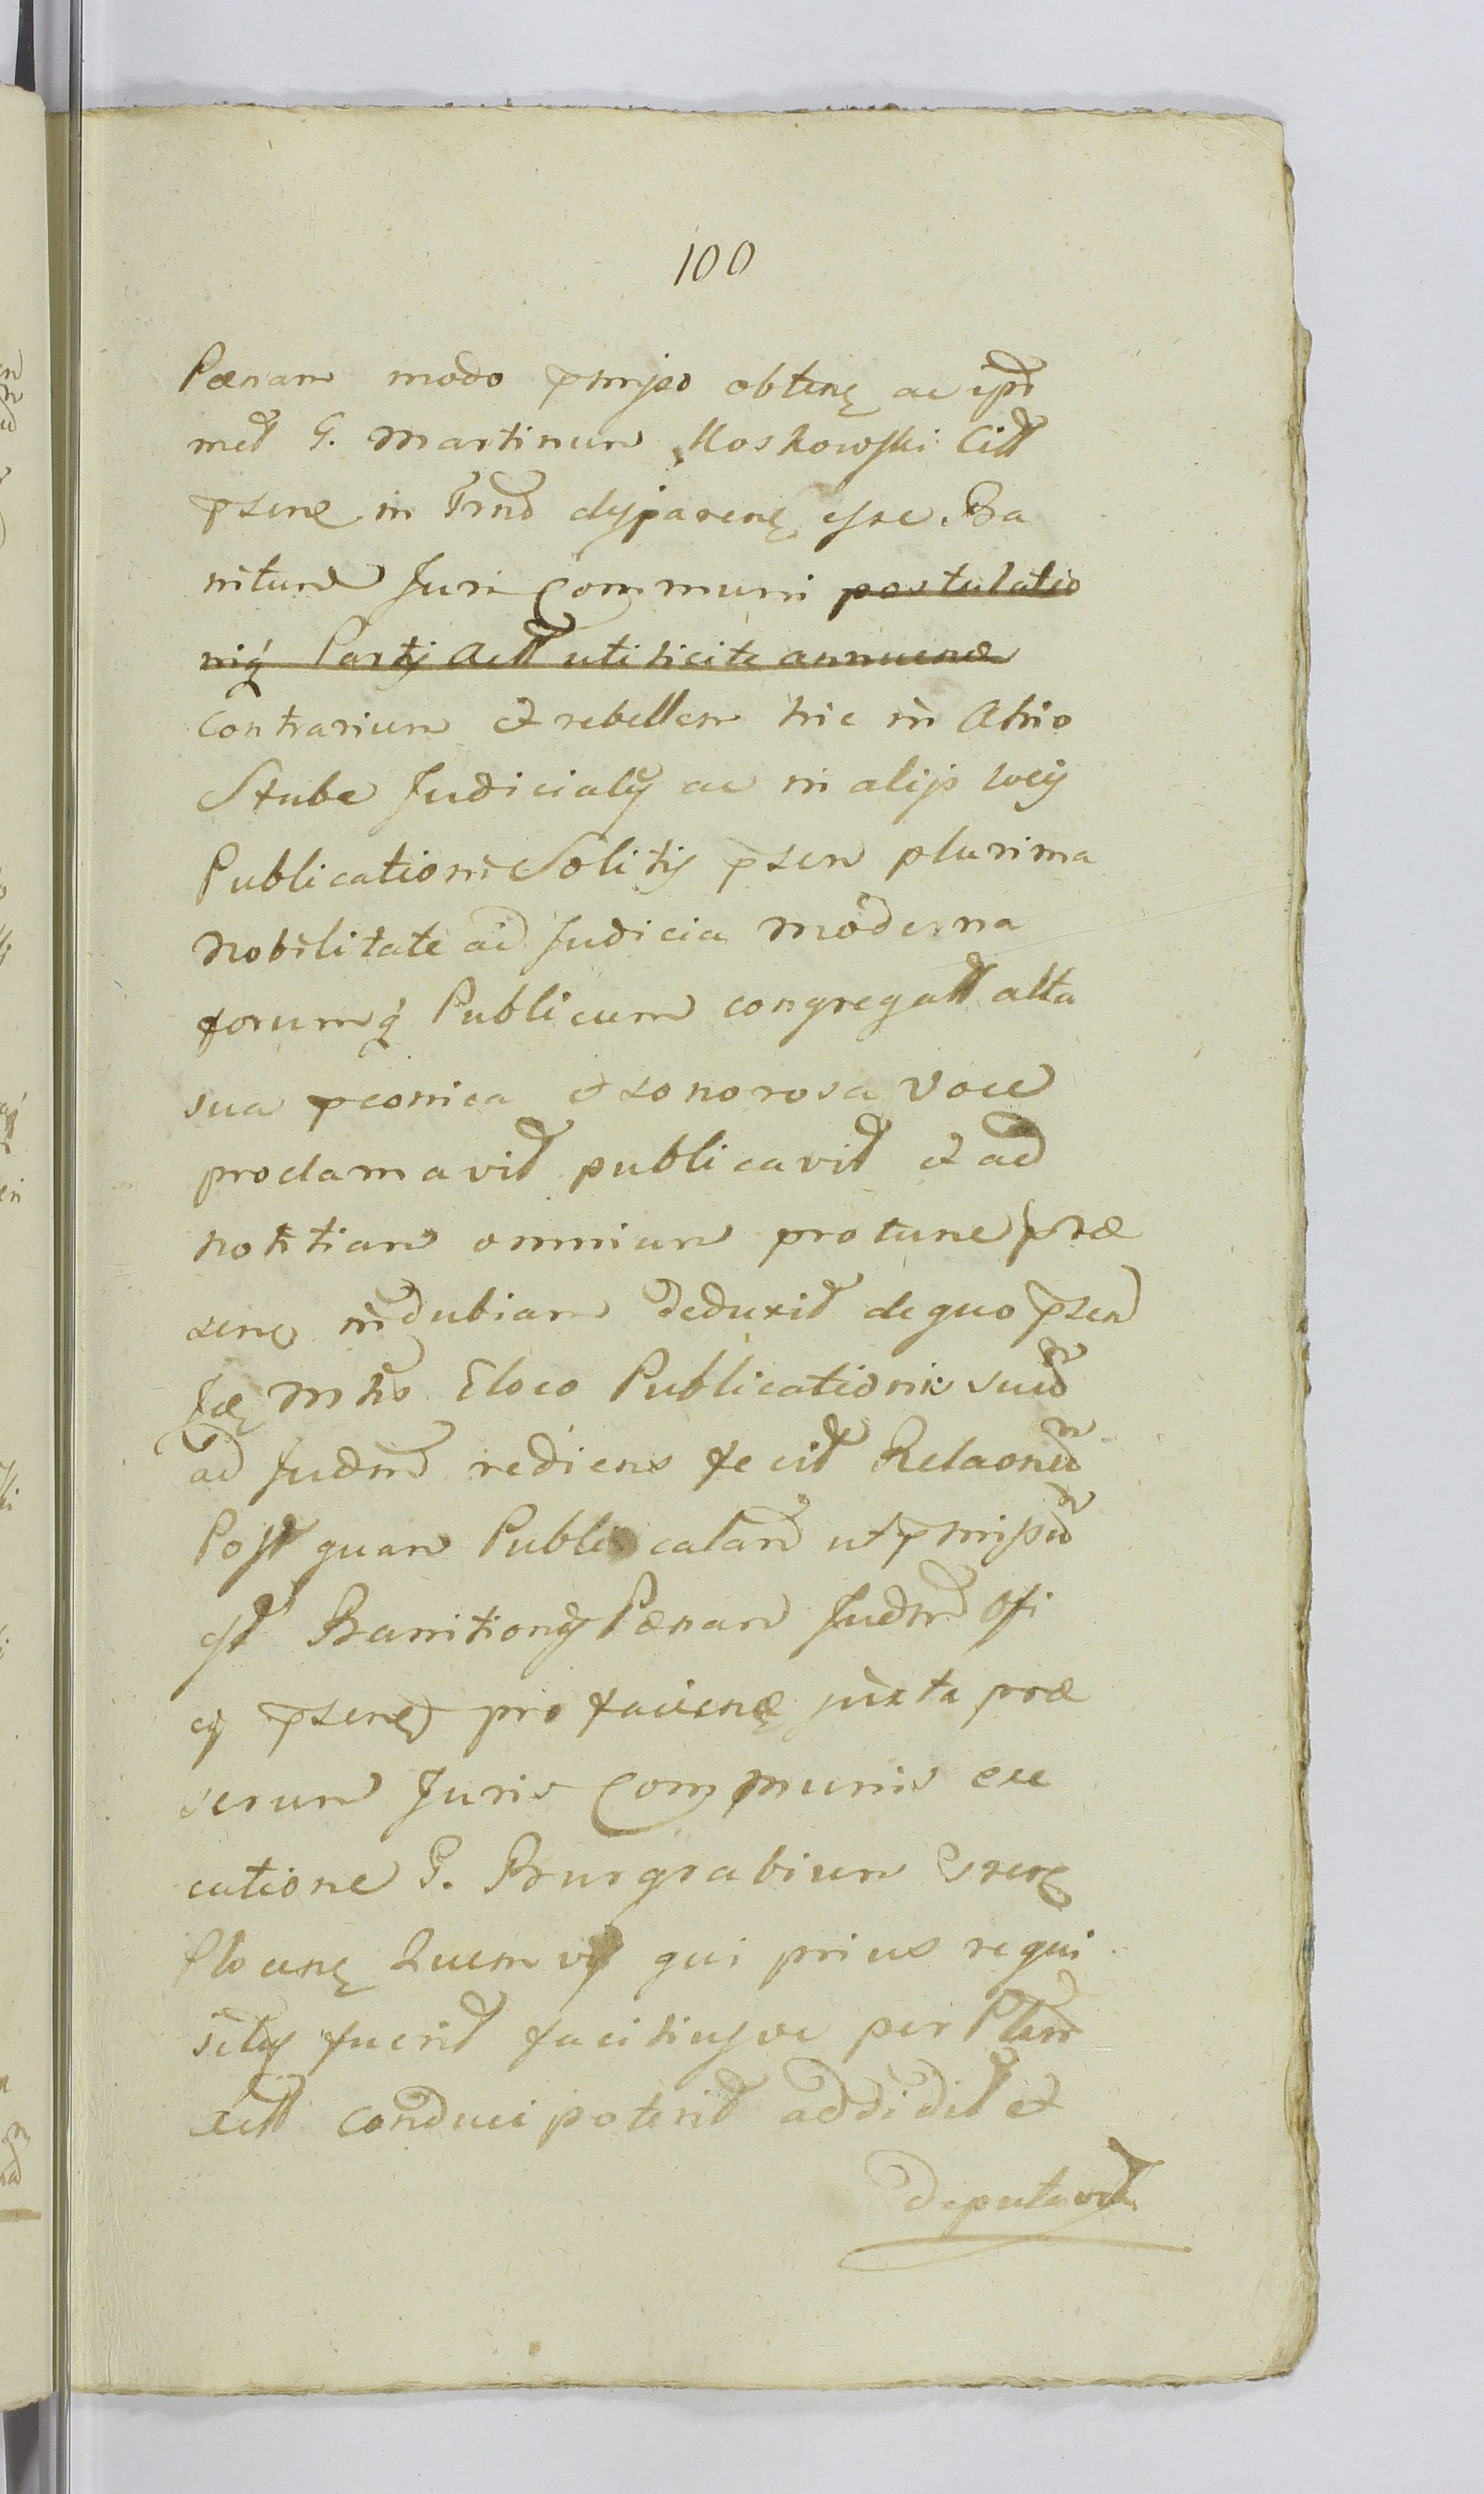 100
Pœnam modo pmisso obtenę ac ipm
met G. Martinum Koskowski Citt
psenę in Trno disparenę esse Ba
nitum Juri Communi postulatio
niq́ Partis Actt uti licite annuenæ
Contrarium et rebellem hic in Atrio
Stubæ Judicialis ac in alijs locis
Publicationi Solitis psen plurima
Nobilitate ad Judicia moderna
forumq́ Publicum congregatt alta
sua pconica et sonorosa voce
proclamavit publicavit et ad
notitiam omnium protunc præ
senę indubiam deduxit de quo psen
Jdę Mtris Eloco Publicationis suæ
ad Judm rediens fecit Relaonem
Post quam Publicatam ut pmissũ
est Banitionis Pœnam Judm Offi
cij psenę pro facienę juxta præ
scrum Juris Communis exe
cutione G. Burgrabium Csrenę
Plocenę Quemvis qui prius requi
situs fuerit faciliusve per Ptem
Actt conduci poterit addidit et
Deputavit